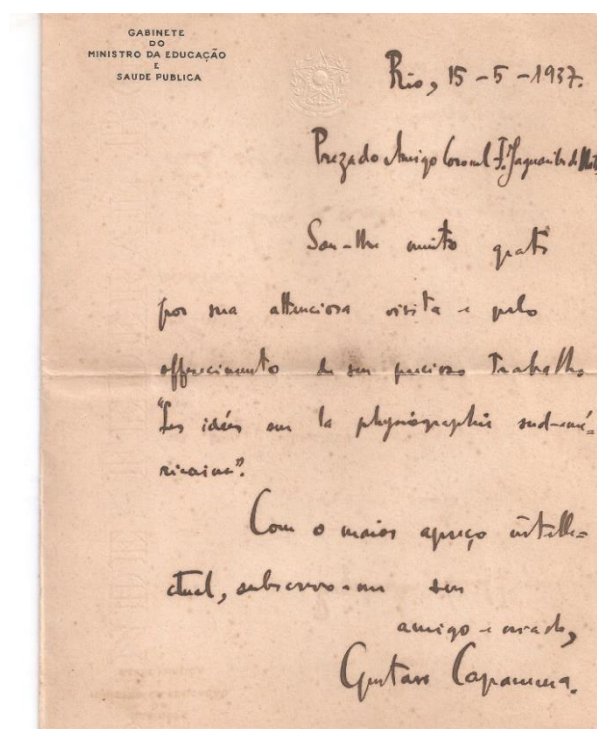 GABINETE
DO
MINISTRO DA EDUCAÇÃO
E
SAUDE PUBLICA
Rio, 15-5-1937.
Prezado Amigo Coronel F. Jaguaribe de
Sou-lhe muito grato
por sua attenciosa visita e pelo
offerecimento de seu precioso trabalho
"Les idées sur la physiographie sud-amé-
ricaine".
Com o maior apreço intelle-
ctual, subscrevo-me seu
amigo e criado,
Gustavo Capanema.